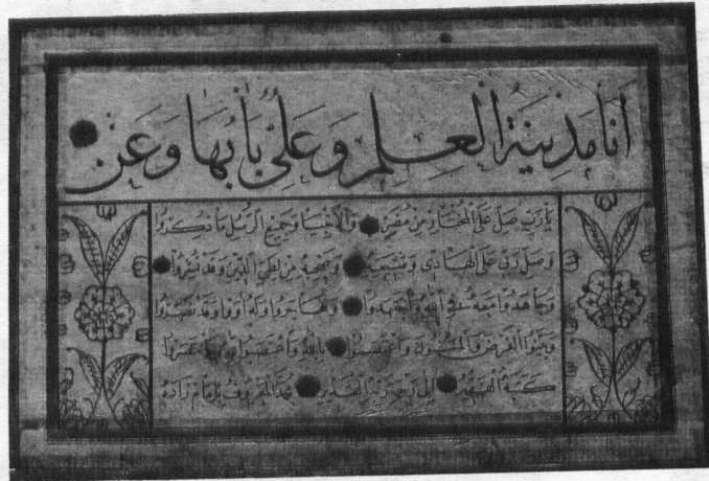 أَنَا مَدِينَةُ الْعِلْمِ وَعَلِيٌّ بَابُهَا وَعَنْ
يَا رَبِّ صَلِّ عَلَى الْمُخْتَارِ مِنْ مُضَرٍ وَالْأَنْبِيَا وَجَمِيعِ الرُّسْلِ مَا ذُكِرُوا
وَصَلِّ رَبِّ عَلَى الْهَادِي وَشِيعَتِهِ وَصَحْبِهِ مَنْ لِطَيِّ الدِّينِ وَقَدْ نَشَرُوا
وَجَاهَدُوا مَعَهُ فِي اللهِ وَاجْتَهَدُوا وَهَاجَرُوا وَلَهُ آوَوْا وَقَدْ نَصَرُوا
وَبَيَّنُوا الْفَرْضَ وَالْمَسْنُونَ
كَتَبَهُ الْفَقِيرُ إِلَى رَحْمَةِ رَبِّهِ الْقَدِيرِ مُحَمَّدٌ الْمَعْرُوفُ بِإِمَامْ زَادَهْ